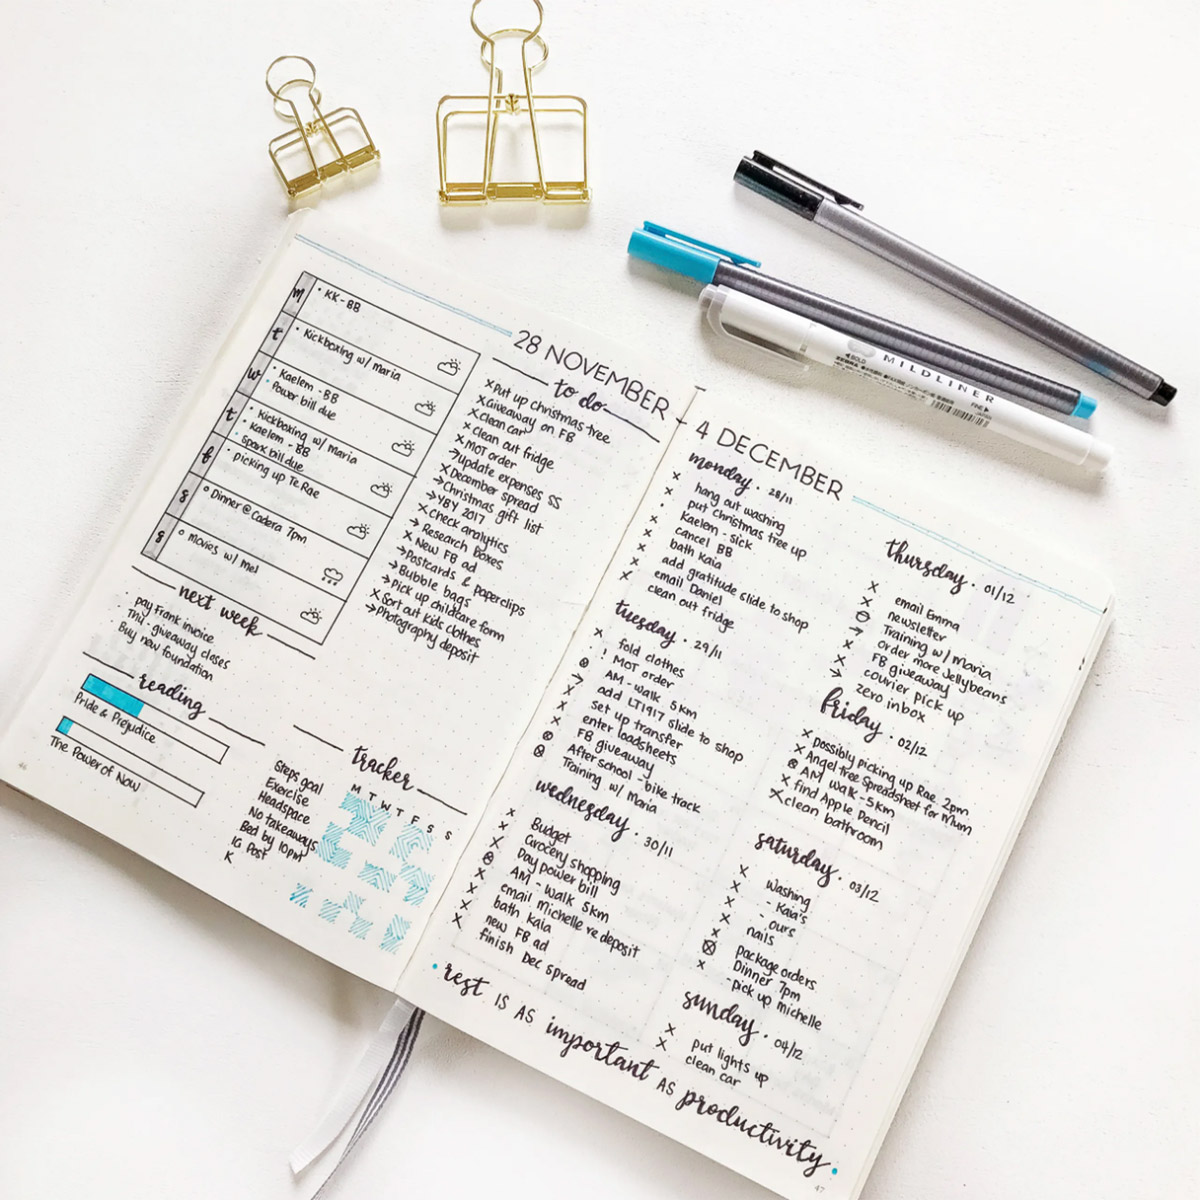 28 NOVEMBER
m
• KK - BB
t
• Kickboxing w/ Maria
w
• Kaelem - BB
• Power bill due
t
• Kickboxing w/ Maria
• Kaelem - BB
• Spark bill due
f
• picking up Te Rae
s
o Dinner @ Cadera 7pm
s
o movies w/ Mel
next week
· pay Frank invoice
· TMJ - giveaway closes
· Buy new foundation
reading
Pride & Prejudice
The Power of Now
46
to do
x Put up christmas tree
x Giveaway on FB
x clean car
x clean out fridge
x MOT order
→ update expenses SS
x December spread
→ Christmas gift list
→ YBY 2017
x Check analytics
→ Research boxes
x New FB ad
→ Postcards & paperclips
→ Bubble bags
→ Pick up childcare form
x Sort out kids clothes
→ Photography deposit
tracker
M T W T F S S
Steps goal
Exercise
Headspace
No takeaways
Bed by 10pm
IG Post
K
- 4 DECEMBER
monday · 28/11
x hang out washing
x put christmas tree up
· Kaelem - sick
x cancel BB
x bath Kaia
x add gratitude slide to shop
x email Daniel
x clean out fridge
tuesday · 29/11
x fold clothes
! MOT order
⊗ AM - walk 5km
→ add LT1917 slide to shop
x set up transfer
x enter loadsheets
x FB giveaway
⊗ After school - bike track
⊗ Training w/ Maria
wednesday · 30/11
x Budget
x Grocery shopping
x Pay power bill
⊗ AM - walk 5km
x email michelle re deposit
x bath Kaia
x new FB ad
x finish Dec spread
thursday · 01/12
x email Emma
x newsletter
⊖ Training w/ Maria
→ order more Jellybeans
x FB giveaway
x courier pick up
→ zero inbox
friday · 02/12
x possibly picking up Rae 2pm
x Angel Tree Spreadsheet for Mum
⊗ AM walk - 5km
x find Apple Pencil
x clean bathroom
saturday · 03/12
x washing
x - Kaia's
x - ours
x nails
x package orders
⊗ Dinner 7pm
x - pick up michelle
sunday · 04/12
x put lights up
x clean car
• rest IS AS important AS productivity •
47
BOLD
MILDLINER
FINE